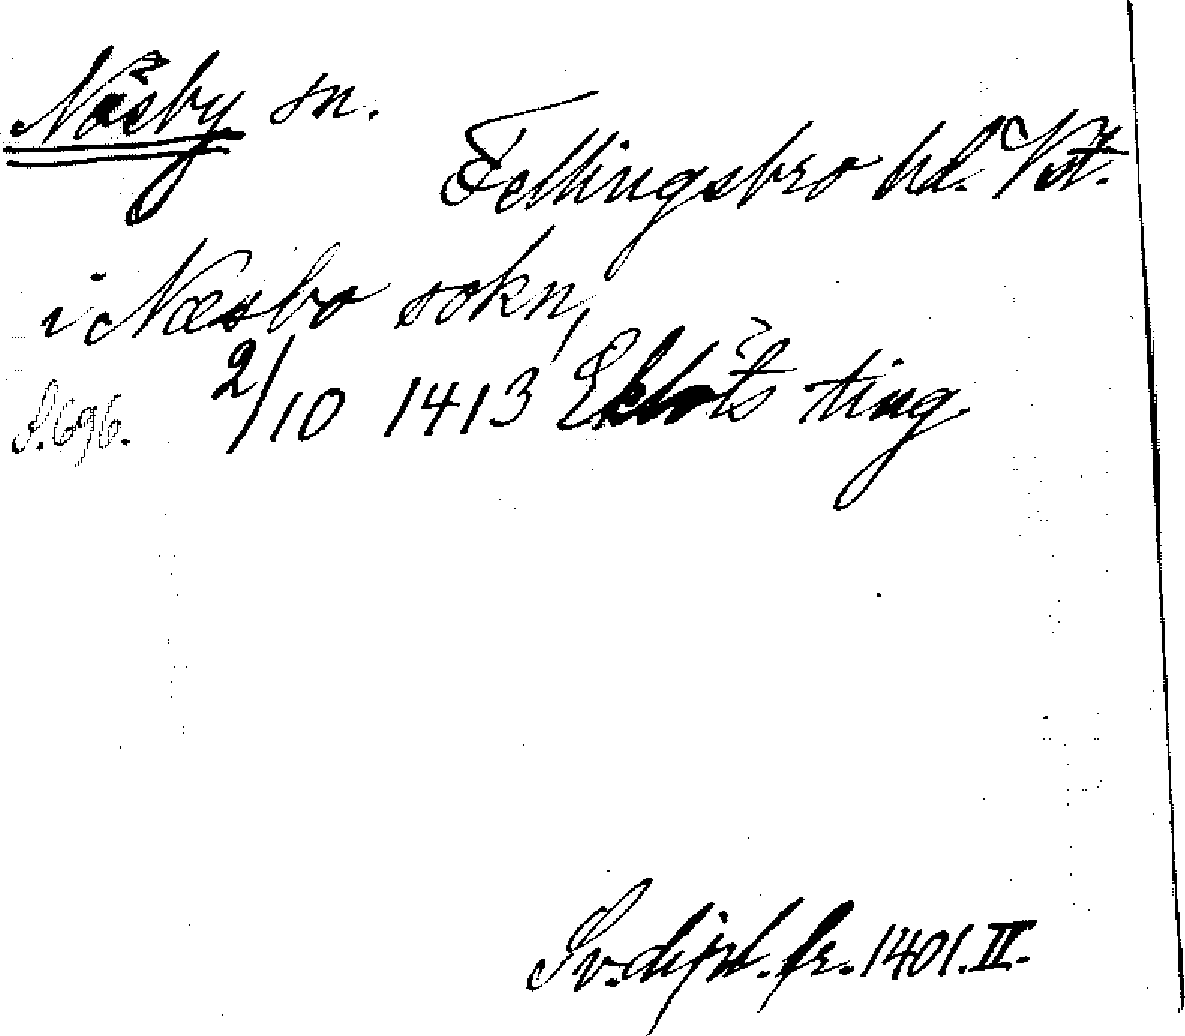 Näsby sn.
Fellingsbro hd. Vstm.
i Næsbo sokn,
S. 696. 2/10 1413 ting
Sv. dipl. fr. 1401. II.